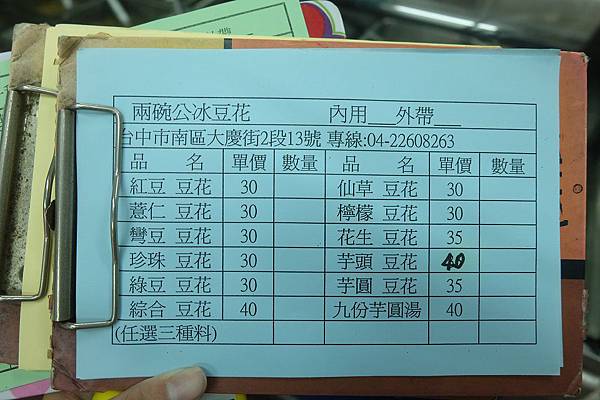 兩碗公冰豆花 內用___外帶___
台中市南區大慶街2段13號 專線:04-22608263
品 名 單價 數量 品 名 單價 數量
紅豆 豆花 30 仙草 豆花 30
薏仁 豆花 30 檸檬 豆花 30
彎豆 豆花 30 花生 豆花 35
珍珠 豆花 30 芋頭 豆花 40
綠豆 豆花 30 芋圓 豆花 35
綜合 豆花 40 九份芋圓湯 40
(任選三種料)